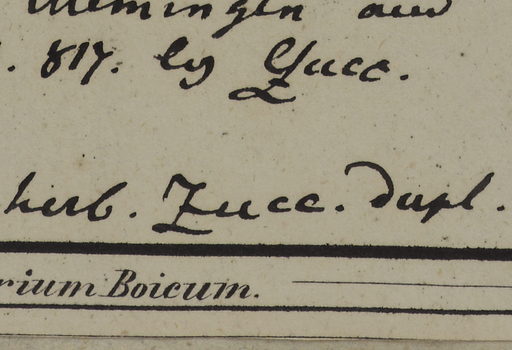 Memingen auf
. 817. leg Zucc.
herb. Zucc. Dupl.
rium Boicum.